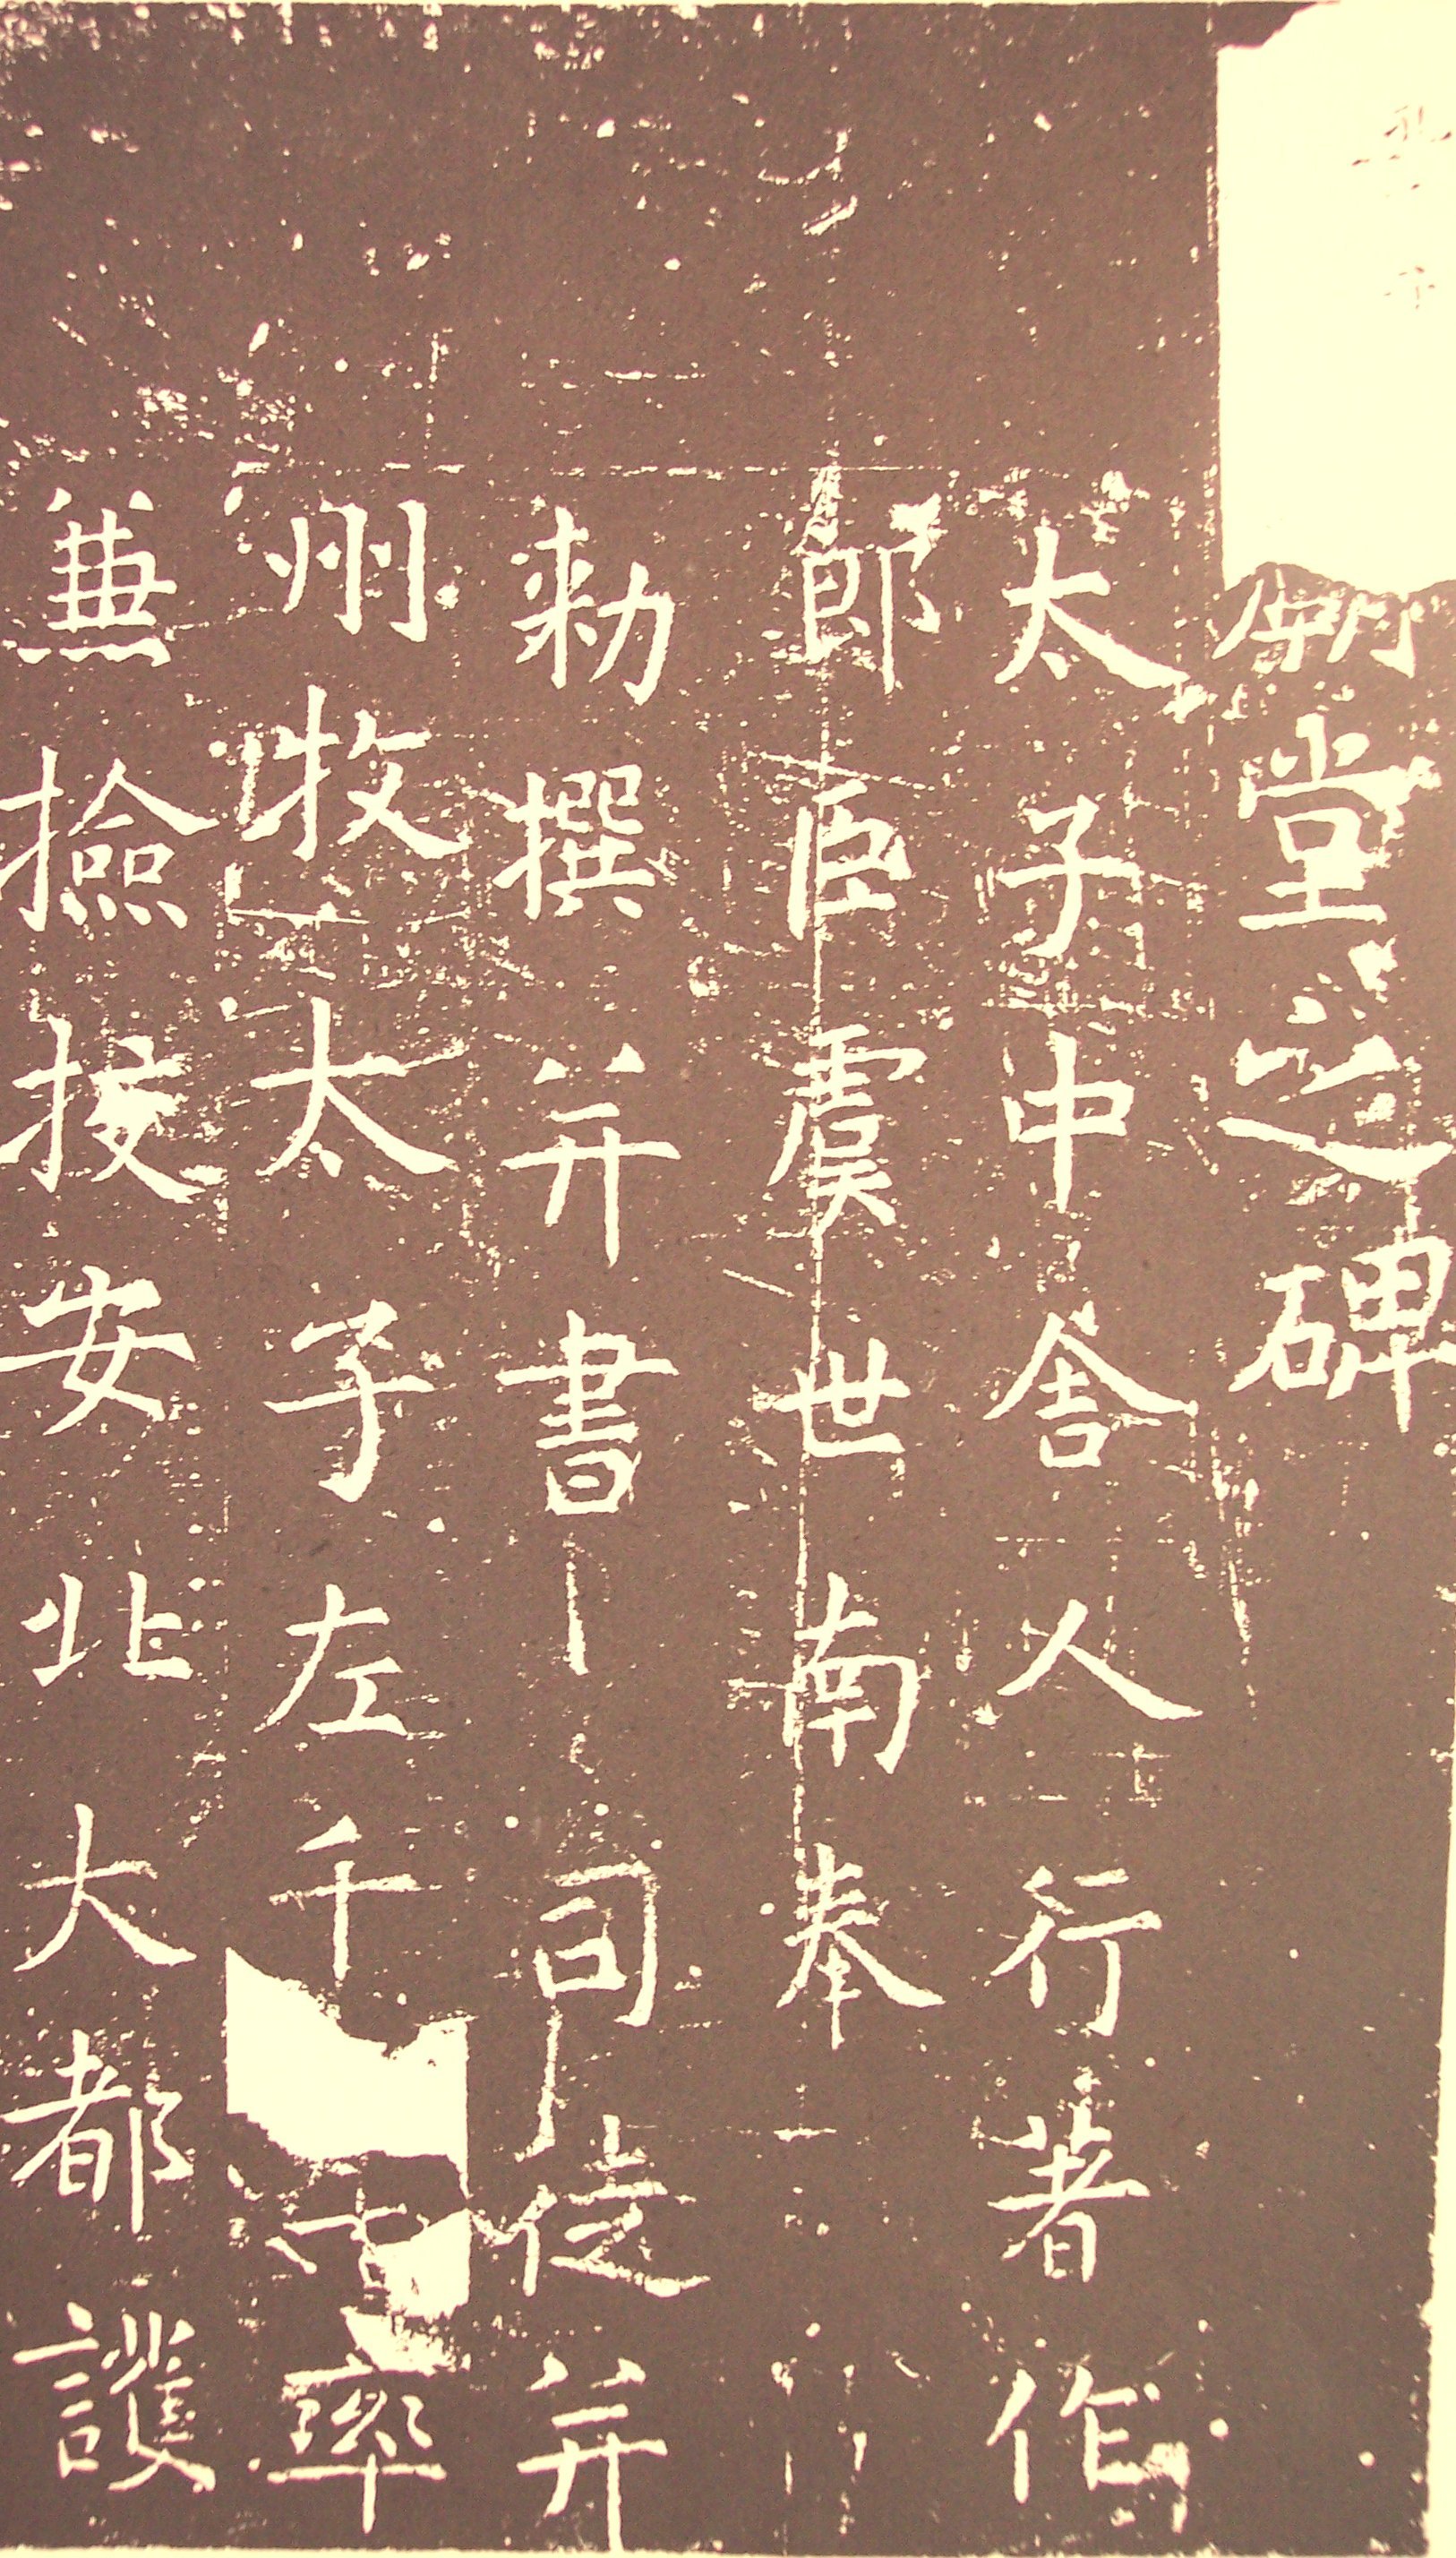 廟堂之碑
太子中舍人行著作
郎臣虞世南奉
勑撰并書 司徒并
州牧太子左千牛率
兼撿挍安北大都護